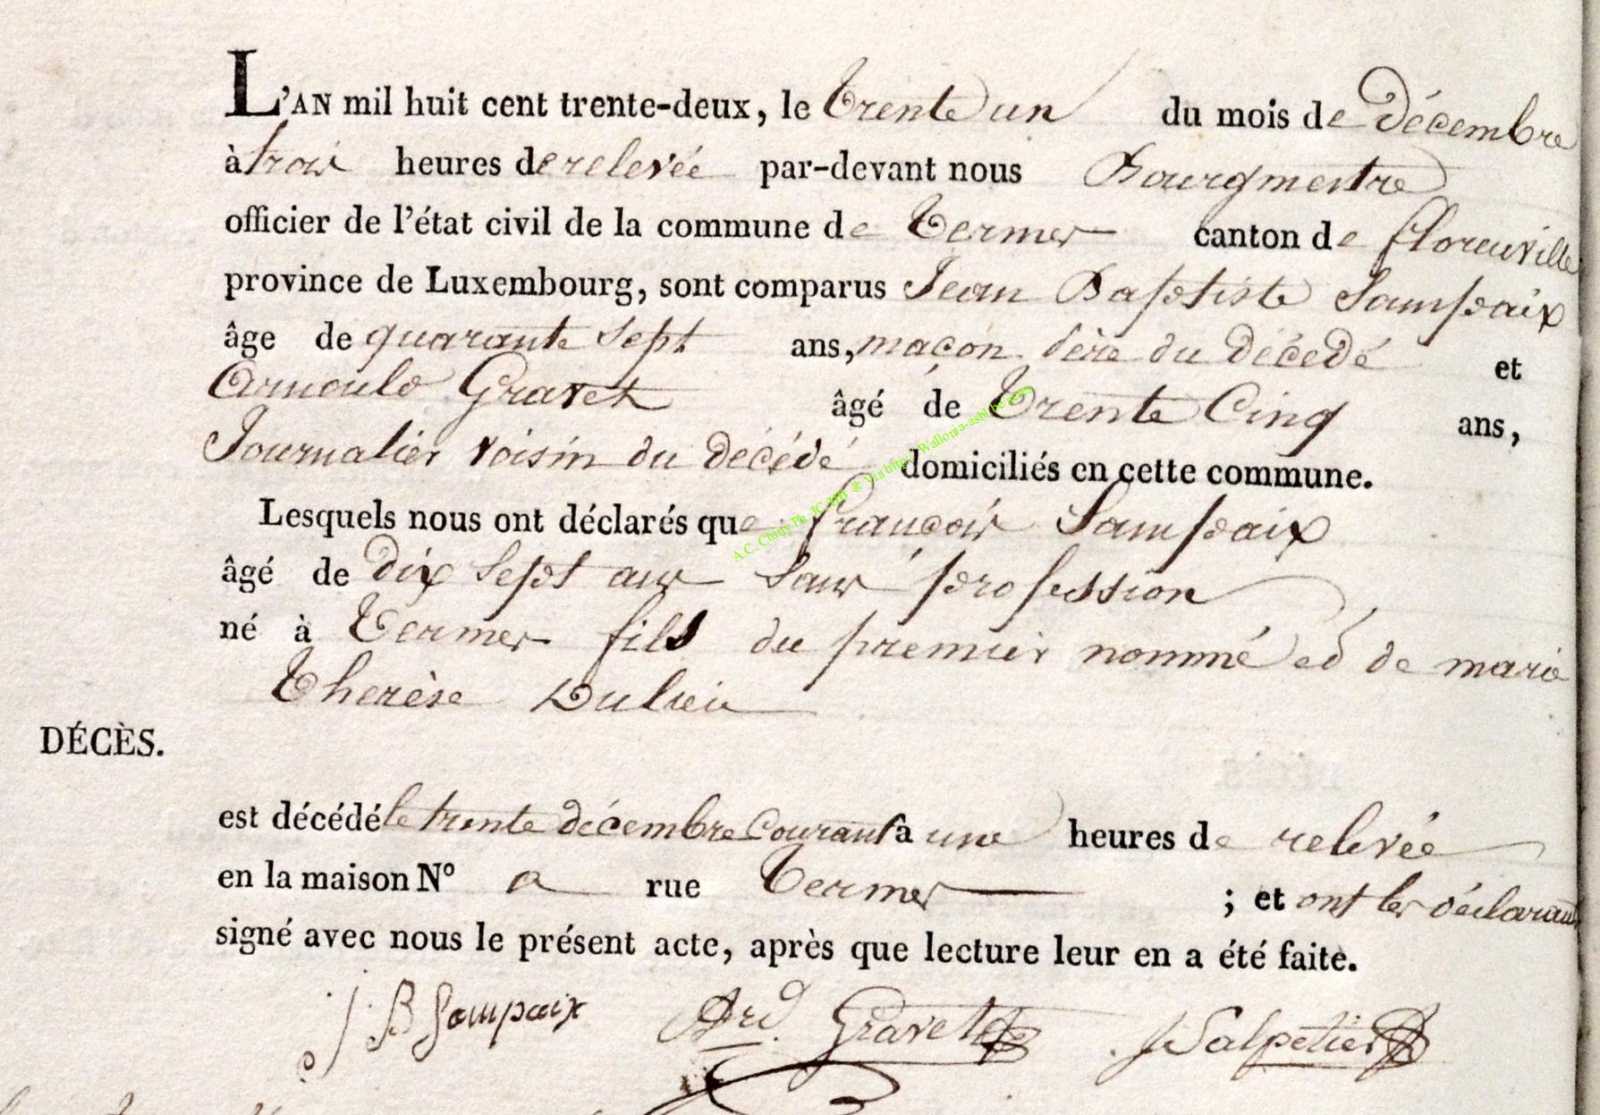 L'AN mil huit cent trente-deux, le trente un du mois de décembre
à trois heures de relevée par-devant nous Bourgmestre
officier de l'état civil de la commune de termes canton de florenville
province de Luxembourg, sont comparus Jean Baptiste Sampaix
âge de quarante sept ans, maçon père du décédé et
Arnould Gravet âgé de trente Cinq ans,
Journalier voisin du décédé domiciliés en cette commune.
Lesquels nous ont déclarés que françois Sampaix
âgé de dix sept ans sans profession
né à termes fils du premier nommé et de marie
thérèse Dulieu
DÉCÈS.
est décédé le trente décembre courant à une heures de relevée
en la maison N° a rue termes ; et ont les déclarans
signé avec nous le présent acte, après que lecture leur en a été faite.
J B Sampaix Ard. Gravet J Salpetier